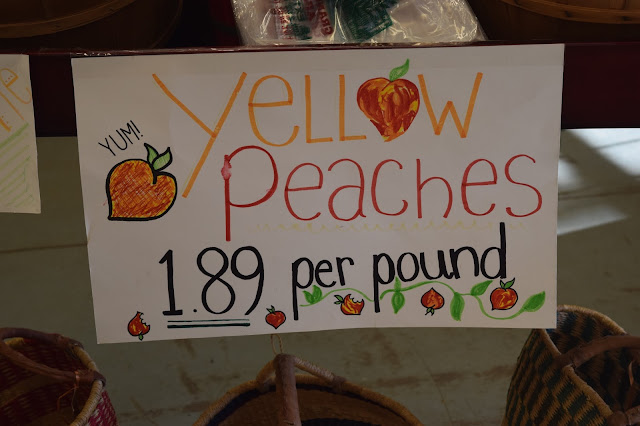 YUM!
Yellow
Peaches
1.89 per pound